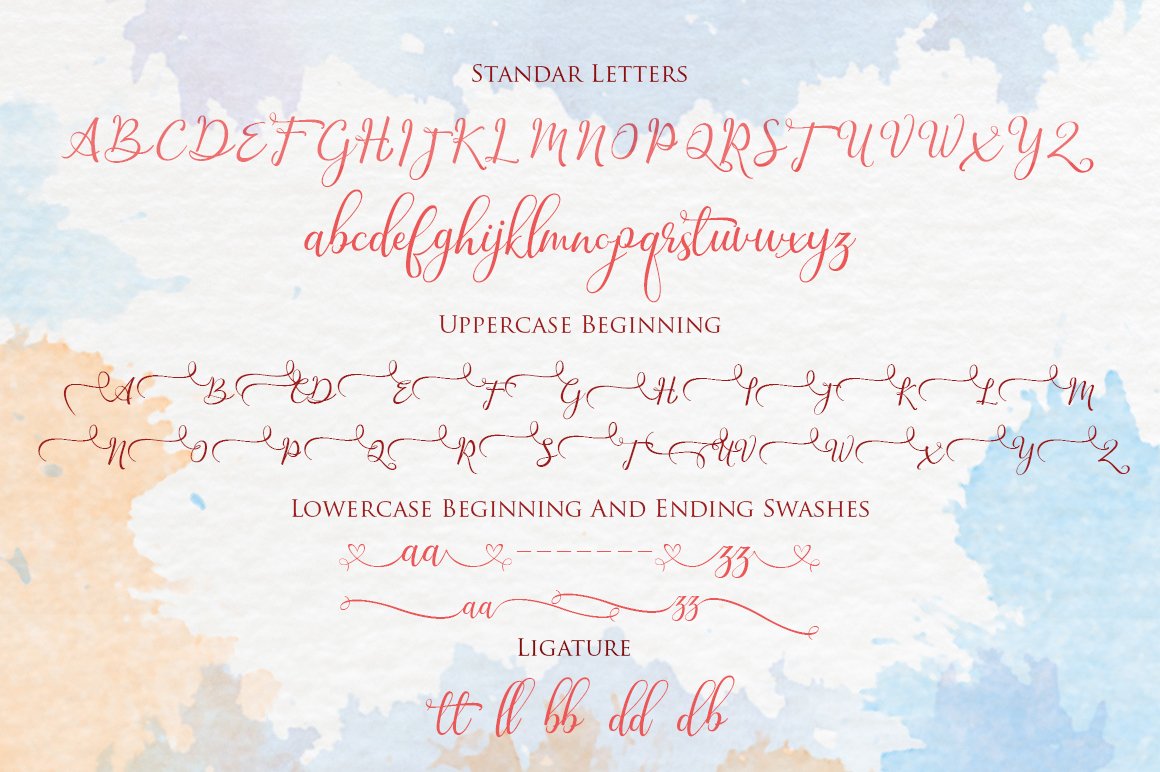 STANDAR LETTERS
ABCDEFGHIJKLMNOPQRSTUVWXYZ
abcdefghijklmnopqrstuvwxyz
UPPERCASE BEGINNING
A B C D E F G H I J K L M
N O P Q R S T U V W X Y Z
LOWERCASE BEGINNING AND ENDING SWASHES
aa ------- zz
aa zz
LIGATURE
tt ll bb dd db